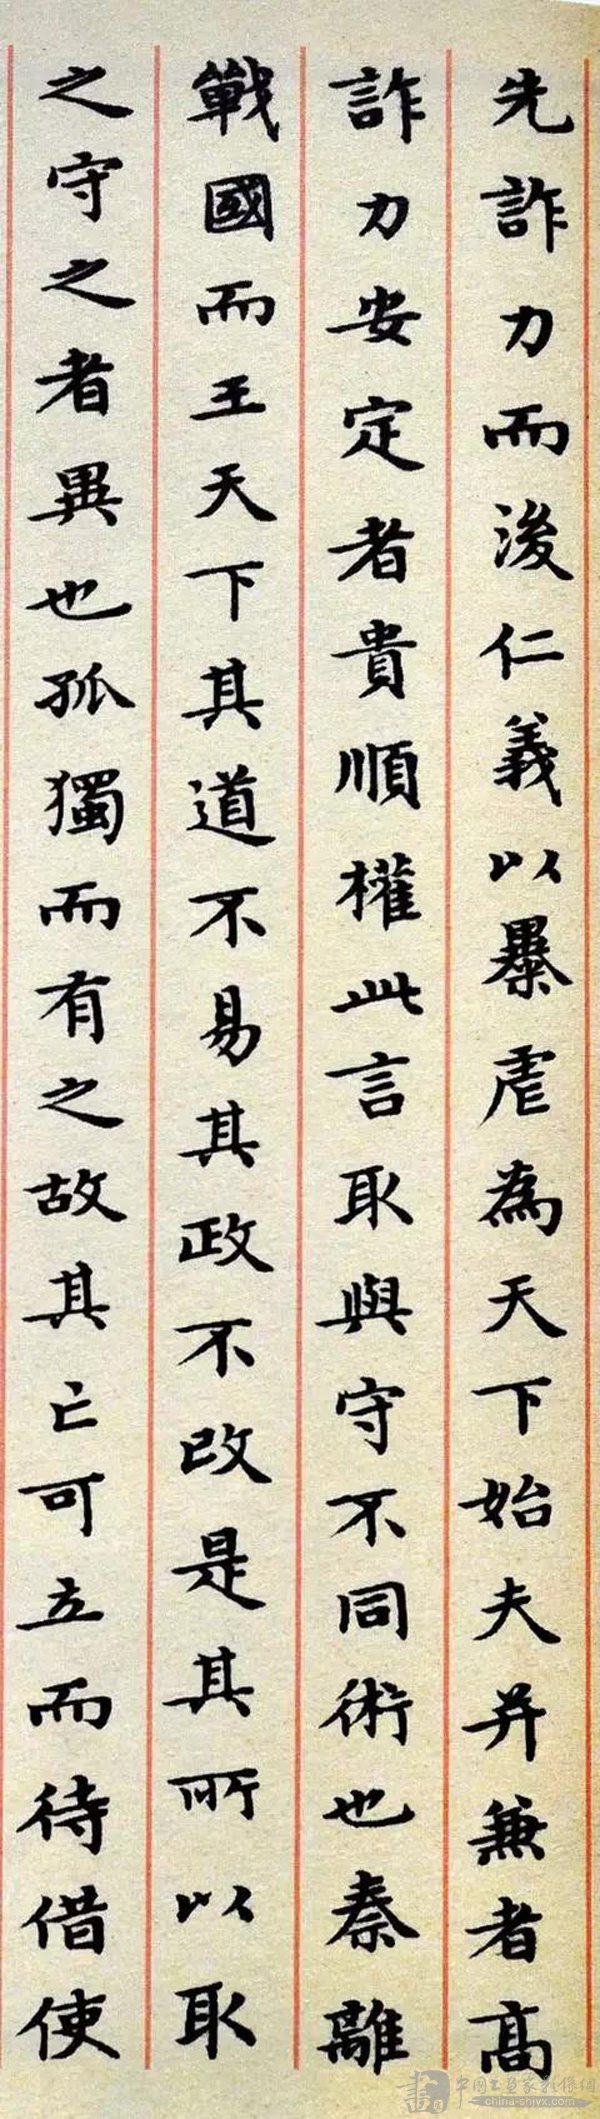 先詐力而後仁義以暴虐為天下始夫并兼者高
詐力安定者貴順權此言取與守不同術也秦離
戰國而王天下其道不易其政不改是其所以取
之守之者異也孤獨而有之故其亡可立而待借使
中国书画家影像网
china-shjyx.com